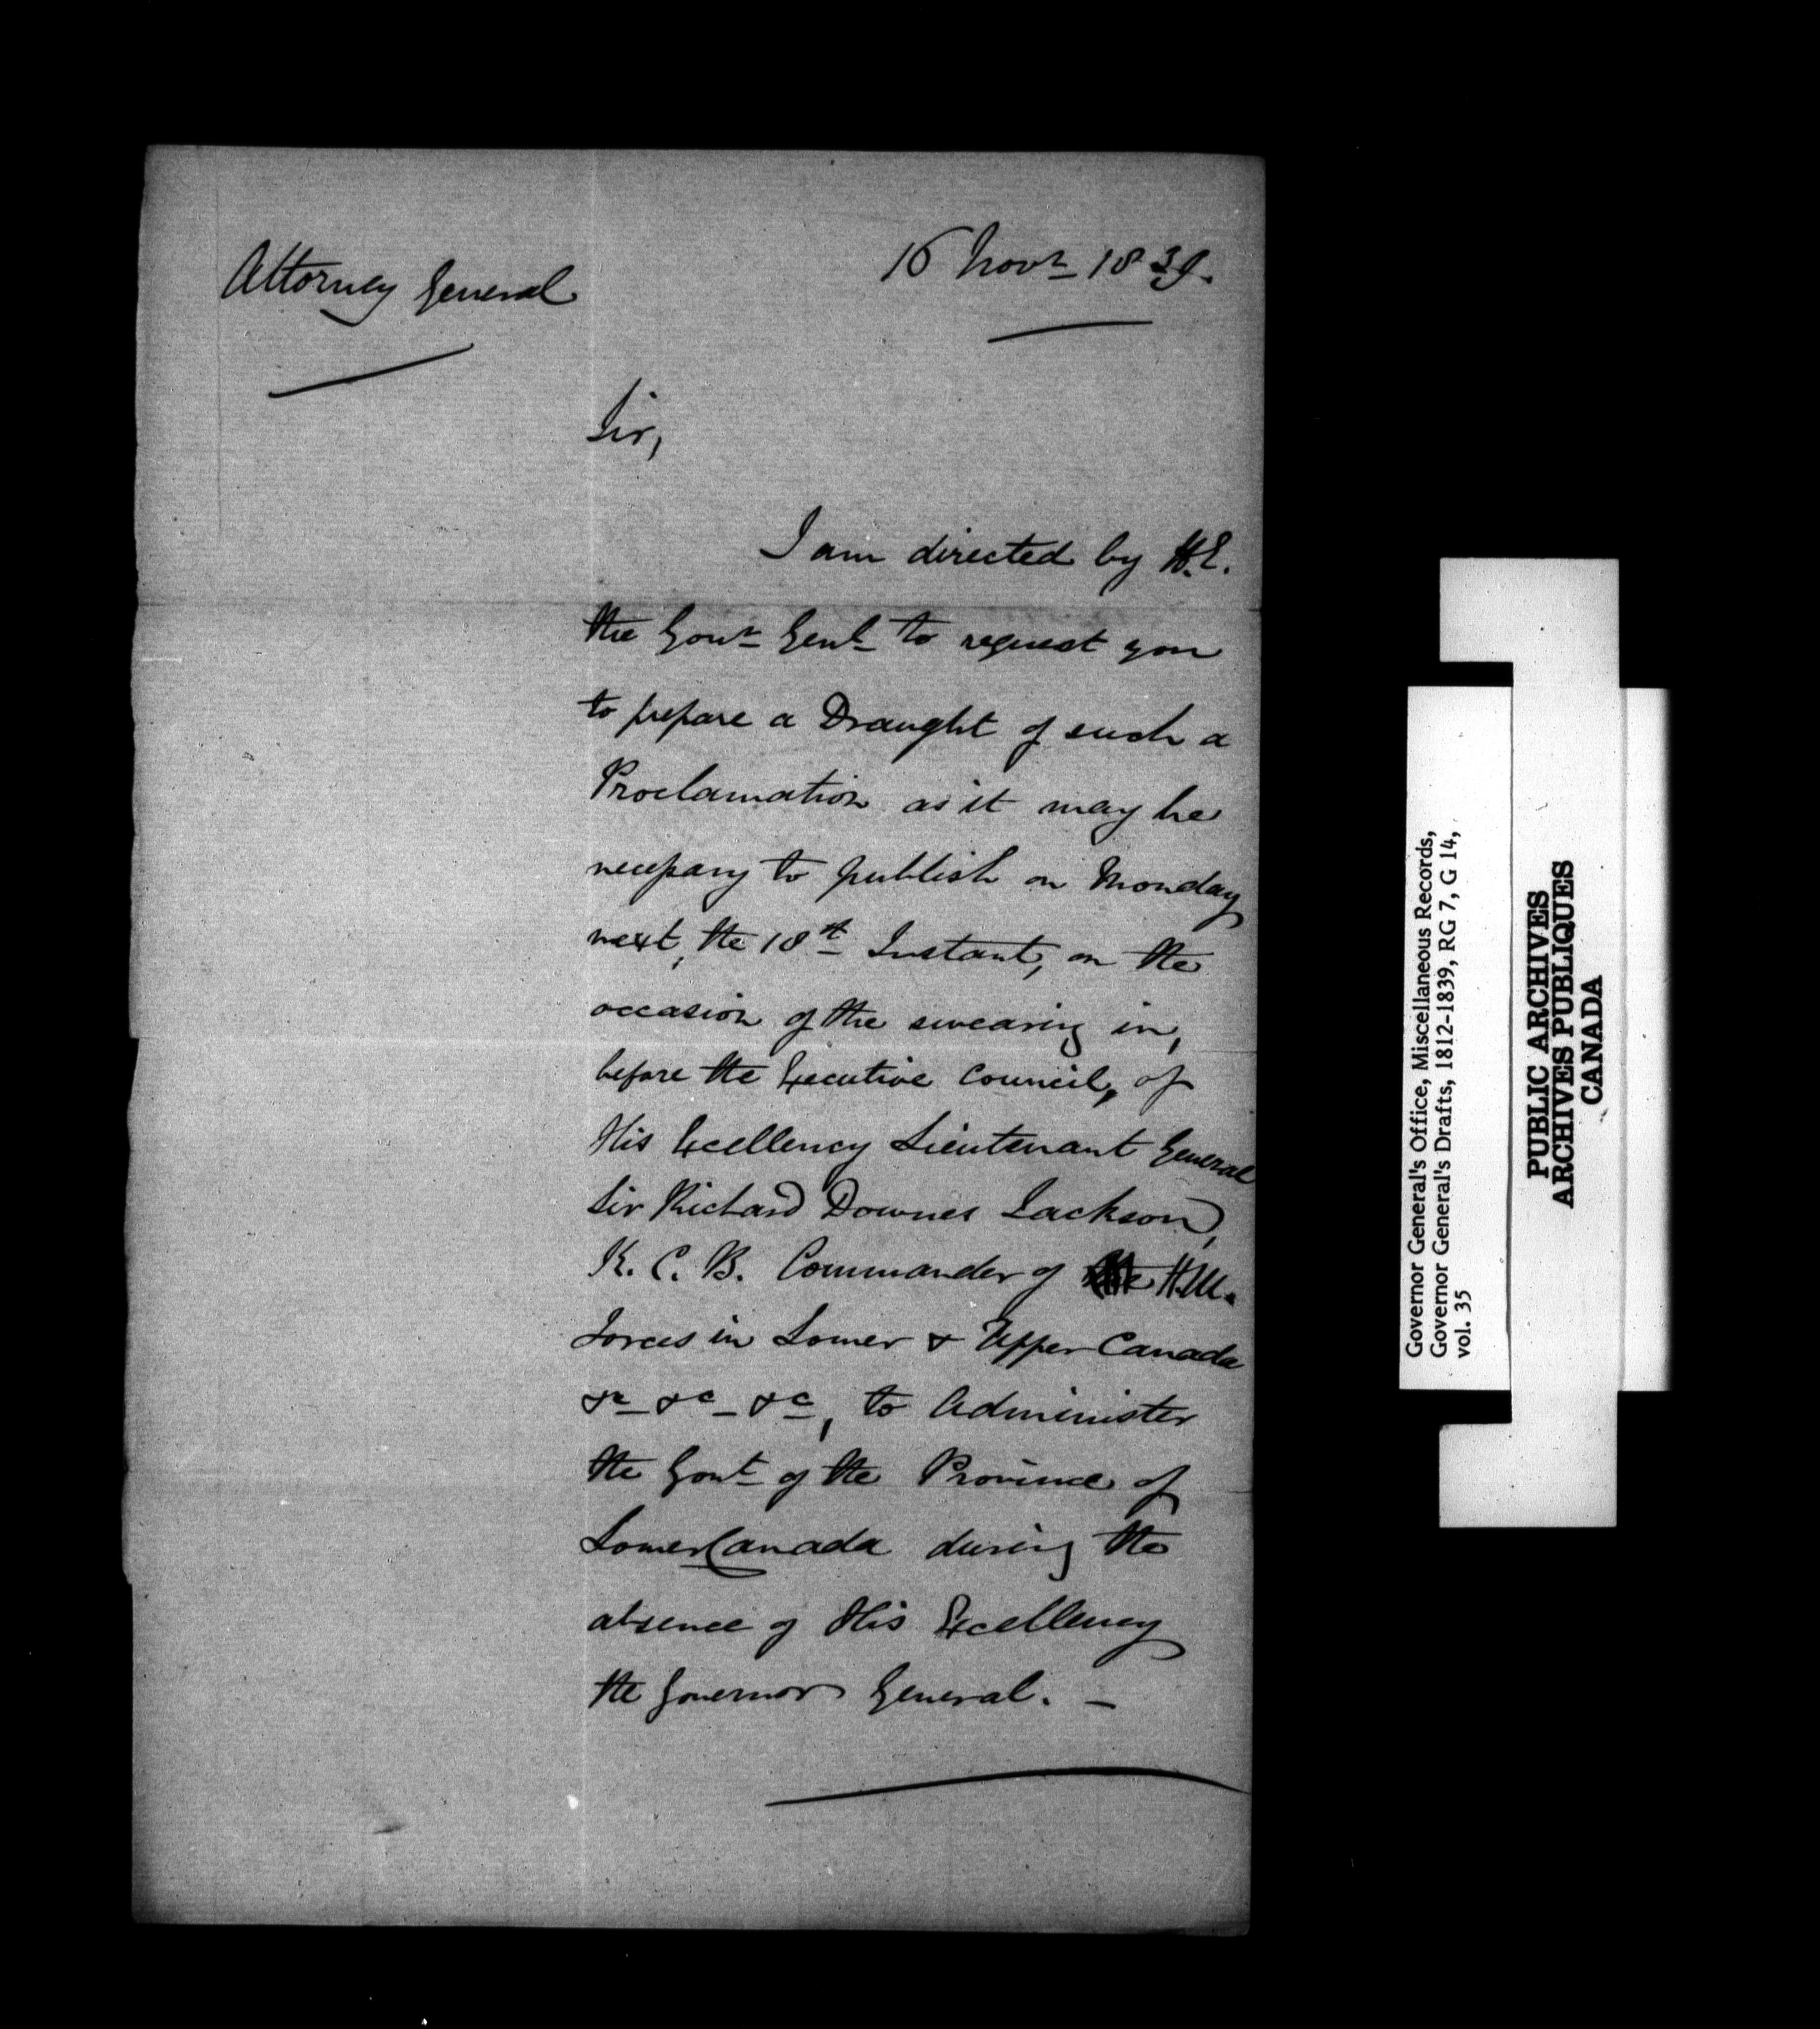 Attorney General
16 Novr 1839.
Sir,
I am directed by H.E.
the Govr Genl to request you
to prepare a Draught of such a
Proclamation as it may be
necessary to publish on Monday
next, the 18th Instant, on the
occasion of the swearing in,
before the Executive Council, of
His Excellency Lieutenant General
Sir Richard Downes Jackson,
K. C. B. Commander of the H.M.
Forces in Lower & Upper Canada
&c &c &c, to Administer
the Govt of the Province of
Lower Canada during the
absence of His Excellency
the Governor General. —
Governor General's Office, Miscellaneous Records,
Governor General's Drafts, 1812-1839, RG 7, G 14,
vol. 35
PUBLIC ARCHIVES
ARCHIVES PUBLIQUES
CANADA